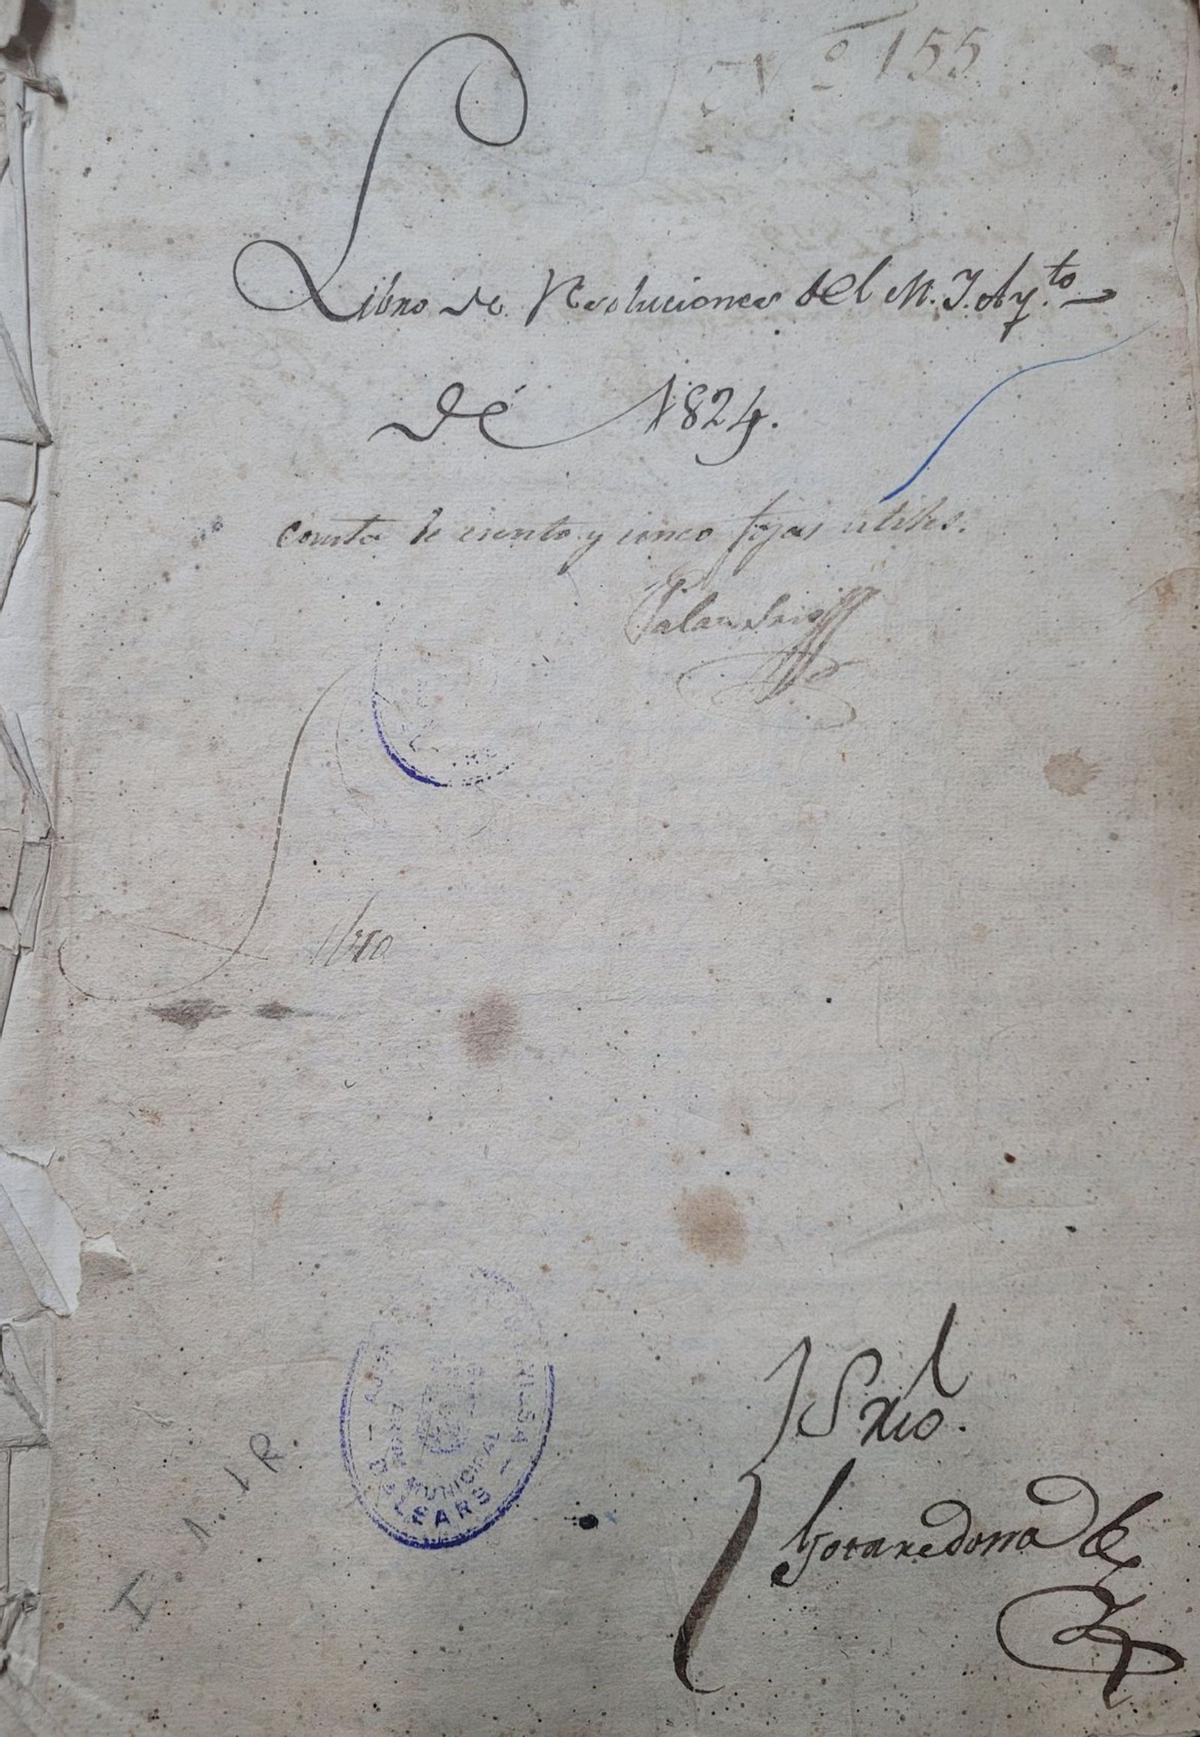 Nº 155
Libro de Resoluciones del M. I. Ay.to
de 1824.
consta de ciento y cinco fojas utiles.
Libro
MUNICIPAL
BALEARS
I. 1. J R.
Srio.
Gotarredona